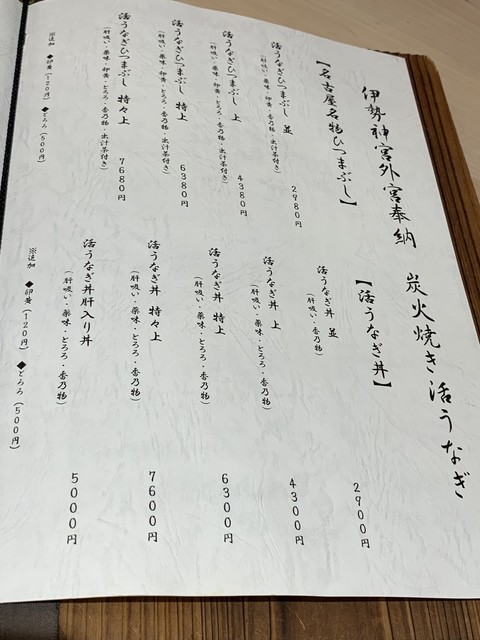 伊勢神宮外宮奉納 炭火焼き活うなぎ
【名古屋名物ひつまぶし】
活うなぎひつまぶし 並 2980円
(肝吸い・薬味・卵黄・出汁茶付き)
活うなぎひつまぶし 上 4380円
(肝吸い・薬味・卵黄・とろろ・香乃物・出汁茶付き)
活うなぎひつまぶし 特上 6380円
(肝吸い・薬味・卵黄・とろろ・香乃物・出汁茶付き)
活うなぎひつまぶし 特々上 7680円
(肝吸い・薬味・卵黄・とろろ・香乃物・出汁茶付き)
※追加 ◆卵黄(120円) ◆とろろ(500円)
【活うなぎ丼】
活うなぎ丼 並 2900円
(肝吸い・香乃物)
活うなぎ丼 上 4300円
(肝吸い・薬味・とろろ・香乃物)
活うなぎ丼 特上 6300円
(肝吸い・薬味・とろろ・香乃物)
活うなぎ丼 特々上 7600円
(肝吸い・薬味・とろろ・香乃物)
活うなぎ丼肝入り丼 5000円
(肝吸い・薬味・とろろ・香乃物)
※追加 ◆卵黄(120円) ◆とろろ(500円)